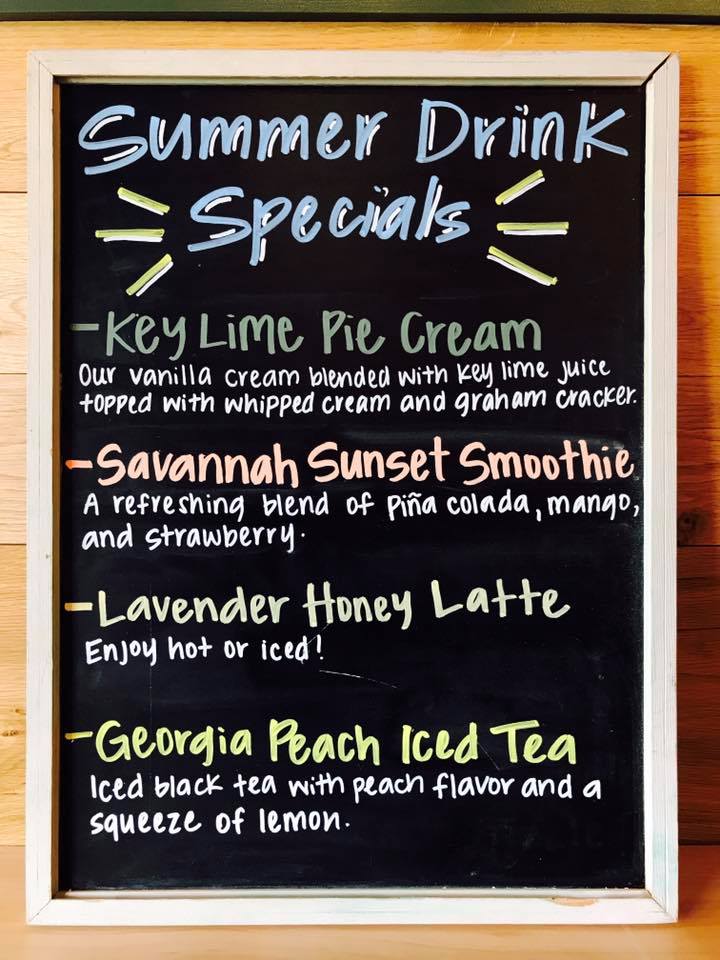 Summer Drink
Specials
-Key Lime Pie Cream
Our vanilla cream blended with key lime juice
topped with whipped cream and graham cracker.
-Savannah Sunset Smoothie
A refreshing blend of piña colada, mango,
and strawberry.
-Lavender Honey Latte
Enjoy hot or iced!
-Georgia Peach Iced Tea
Iced black tea with peach flavor and a
squeeze of lemon.